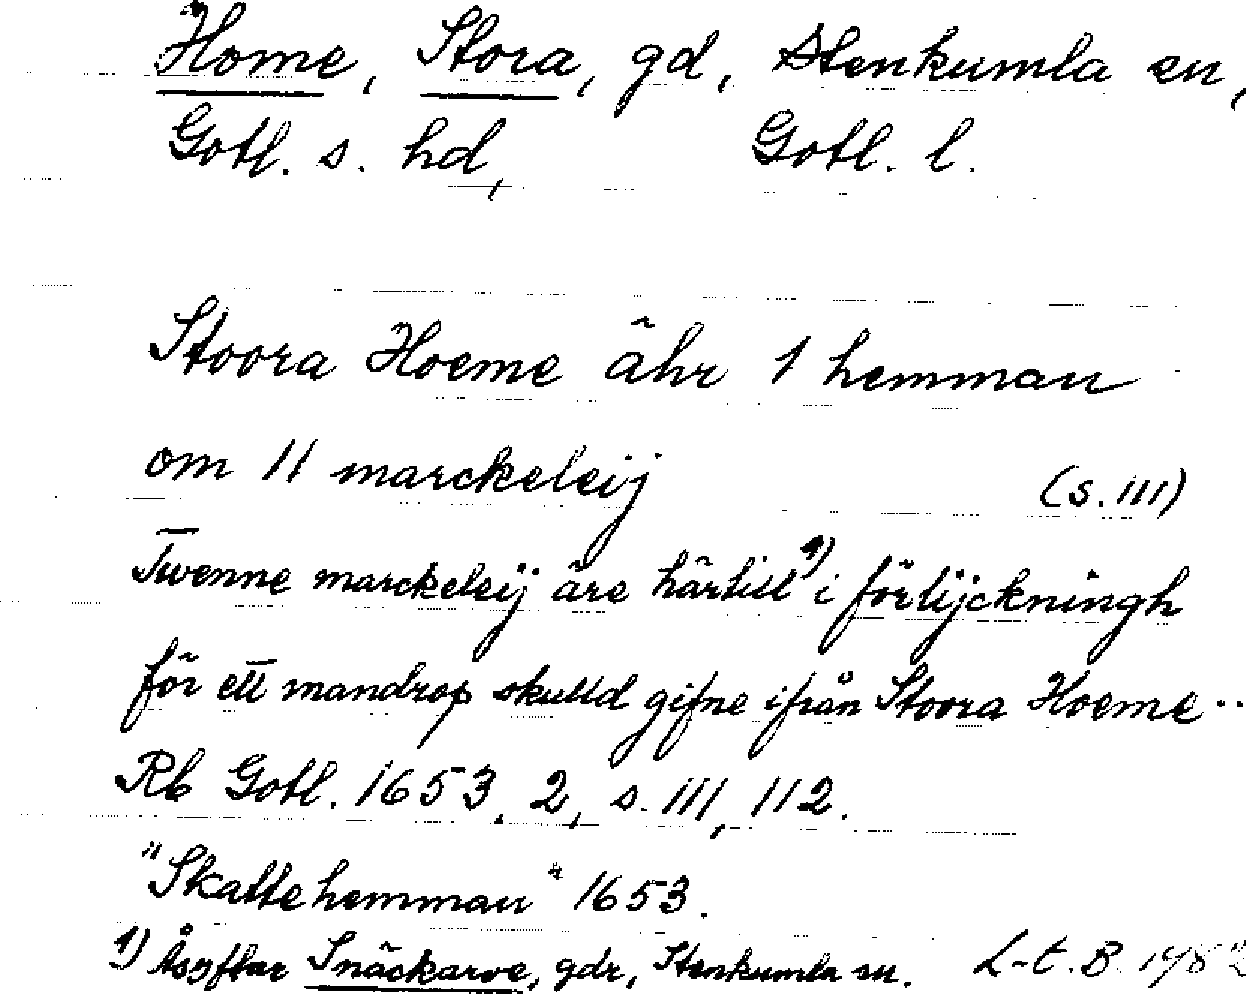 Home, Stora, gd, Stenkumla sn,
Gotl. s. hd, Gotl. l.
Stoora Hoeme ähr 1 hemman
om 11 marckeleij (s. 111)
Twenne marckeleij äre härtill 1) i förlijckningh
för ett mandrop skulld gifne ifrån Stoora Hoeme ..
Rb Gotl. 1653, 2, s. 111, 112.
"Skattehemman" 1653.
1) Åsyftar Snäckarve, gdr, Stenkumla sn. L-t. B.